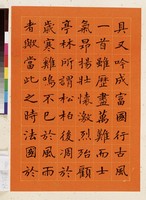 具又吟成富國行古風
一首雖歷盡艱難而士
氣昂揚壯懷激烈殆顧
亭林所謂松柏後凋於
歲寒雞鳴不已於風雨
者歟當此之時法國於